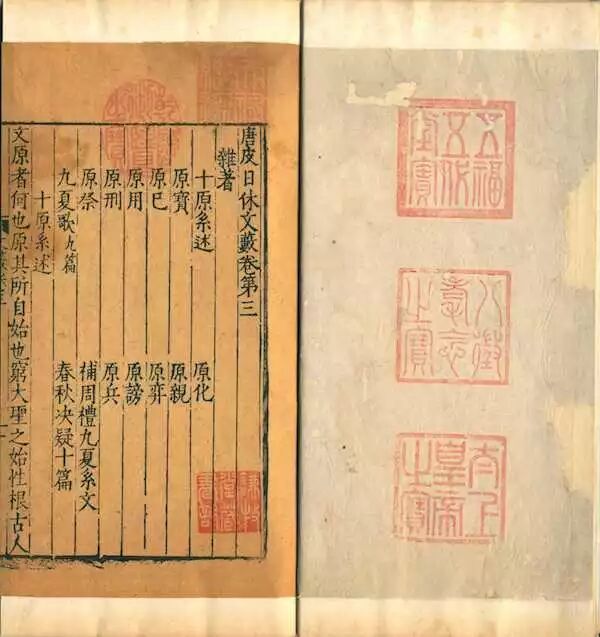 五福五代堂寶
八徵耄念之寶
太上皇帝之寶
唐皮日休文藪卷第三
雜著
十原系述 原化
原寶 原親
原已 原弈
原用 原謗
原刑 原兵
原祭 補周禮九夏系文
九夏歌九篇 春秋决疑十篇
十原系述
文原者何也原其所自始也窮大聖之始性根古人
乾隆御覽之寶
謙牧堂藏書記